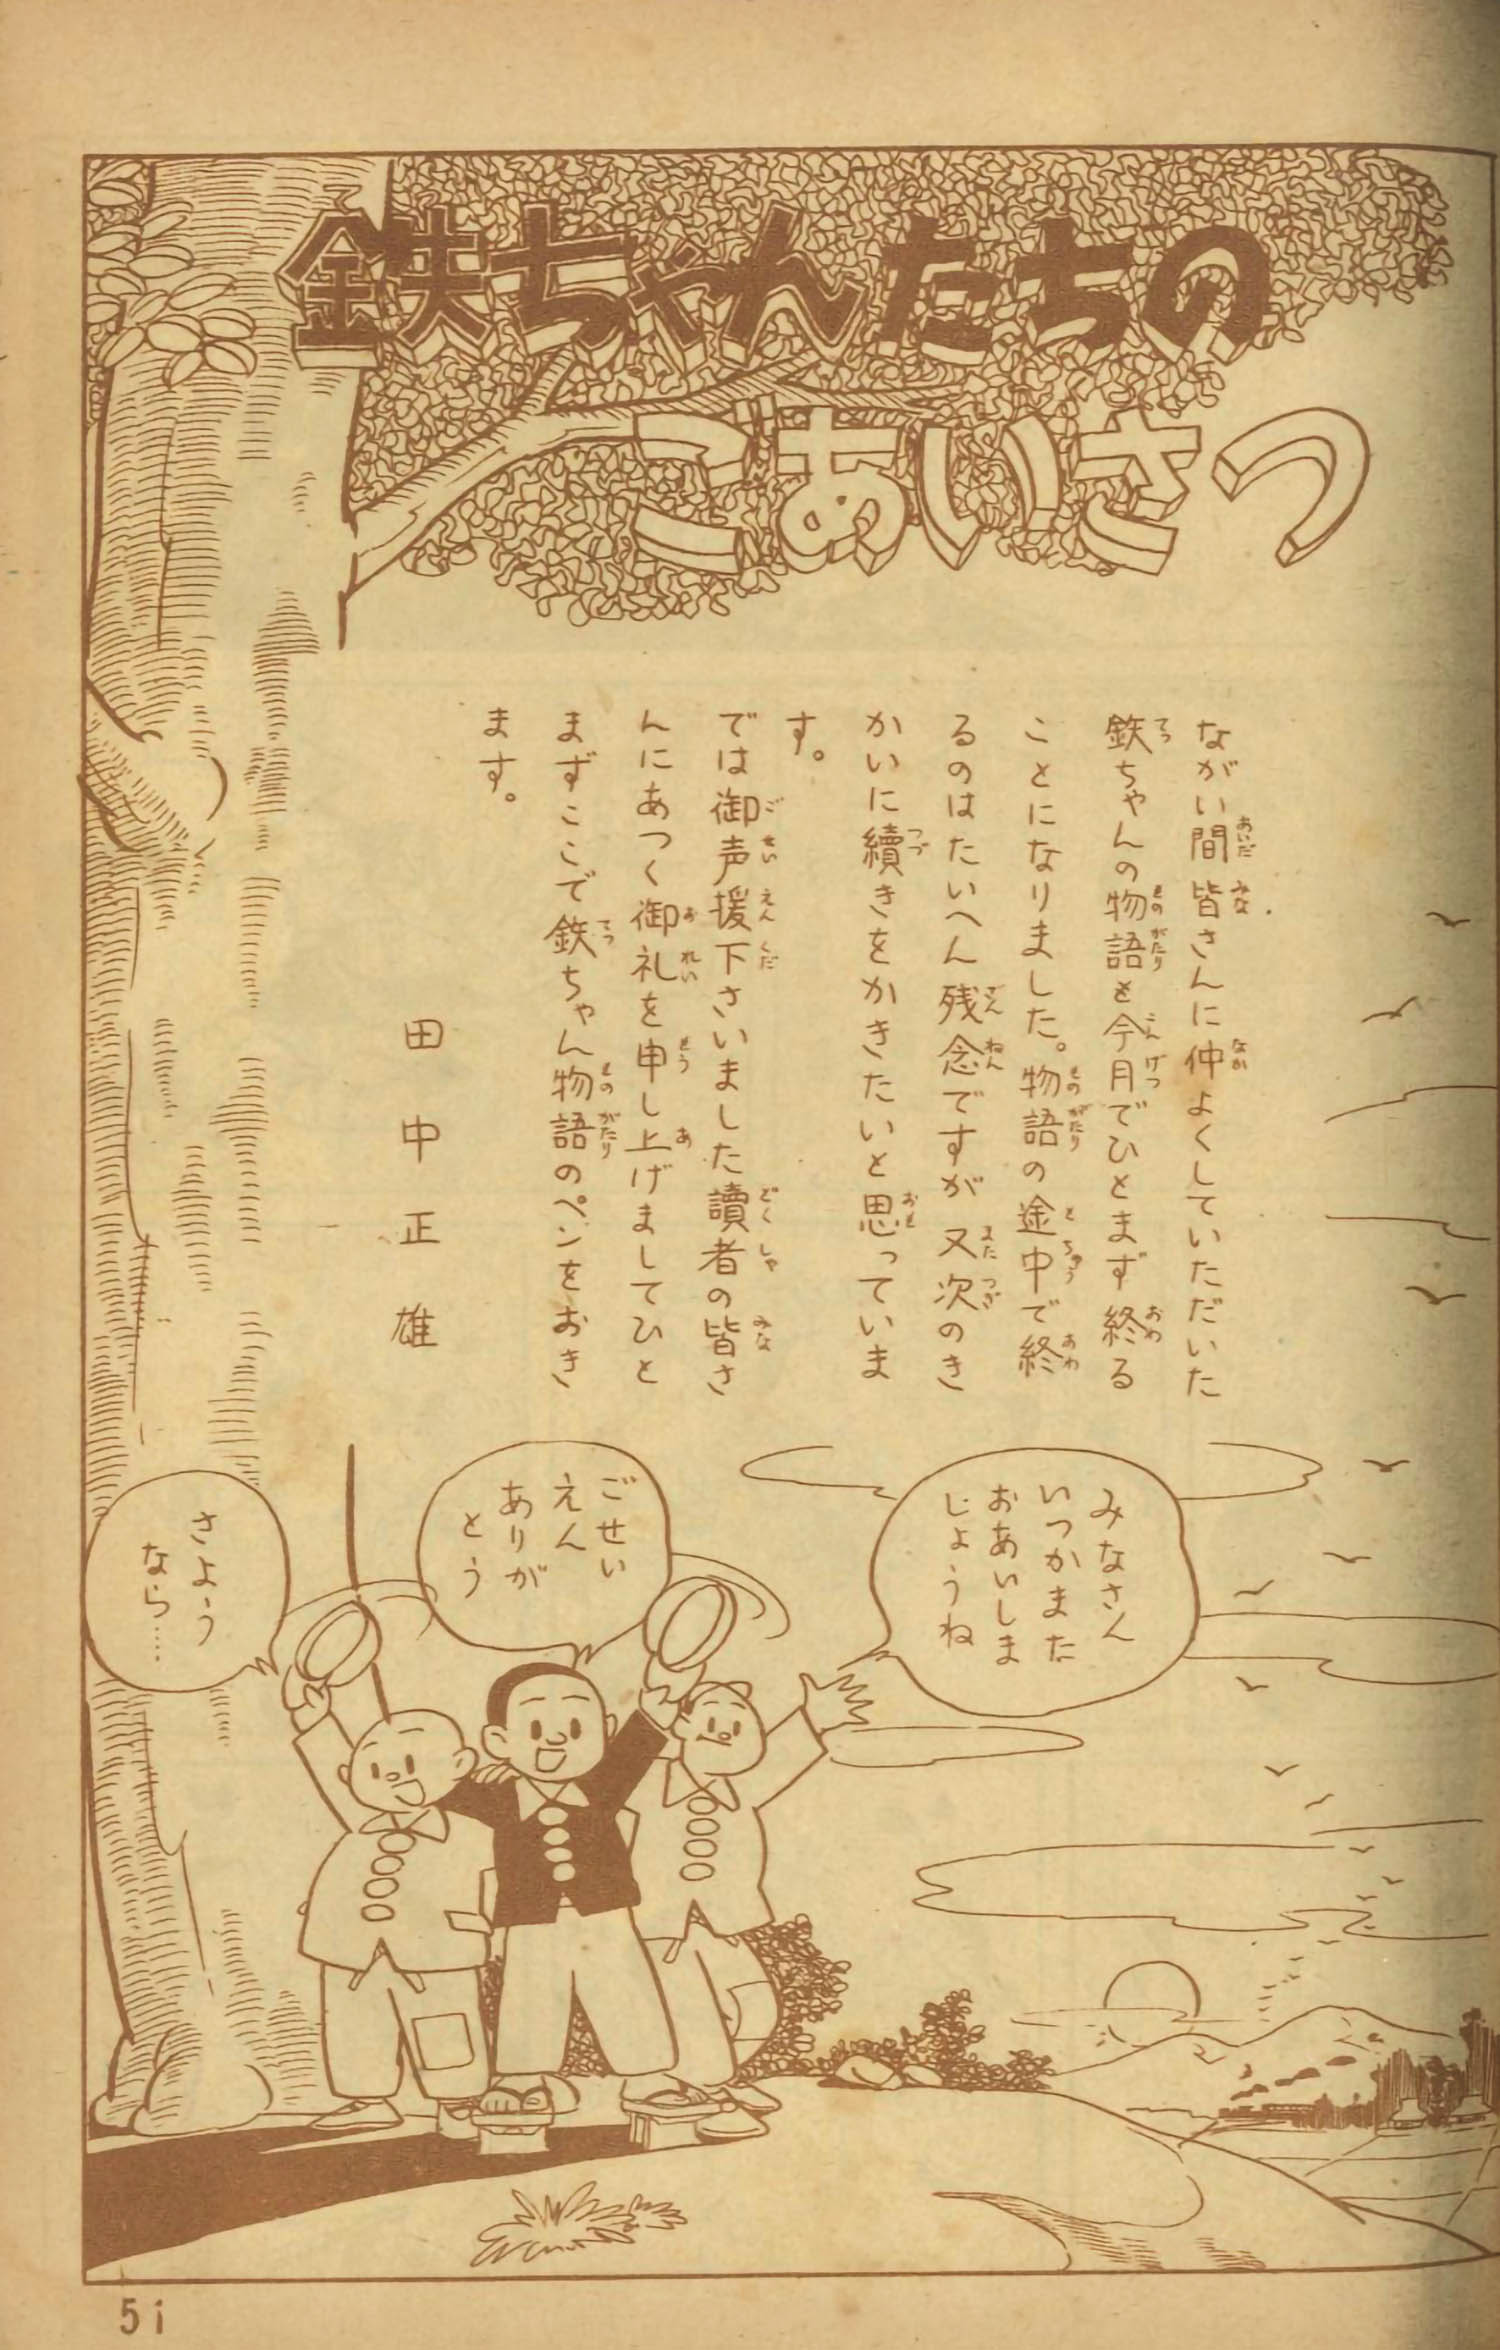 鉄ちゃんたちの
ごあいさつ
ながい間皆さんに仲よくしていただいた
鉄ちゃんの物語も今月でひとまず終る
ことになりました。物語の途中で終
るのはたいへん残念ですが又次のき
かいに續きをかきたいと思っていま
す。
では御声援下さいました讀者の皆さ
んにあつく御礼を申し上げましてひと
まずここで鉄ちゃん物語のペンをおき
ます。
田中正雄
みなさん
いつかまた
おあいしま
じょうね
ごせい
えん
ありが
とう
さよう
なら……
51